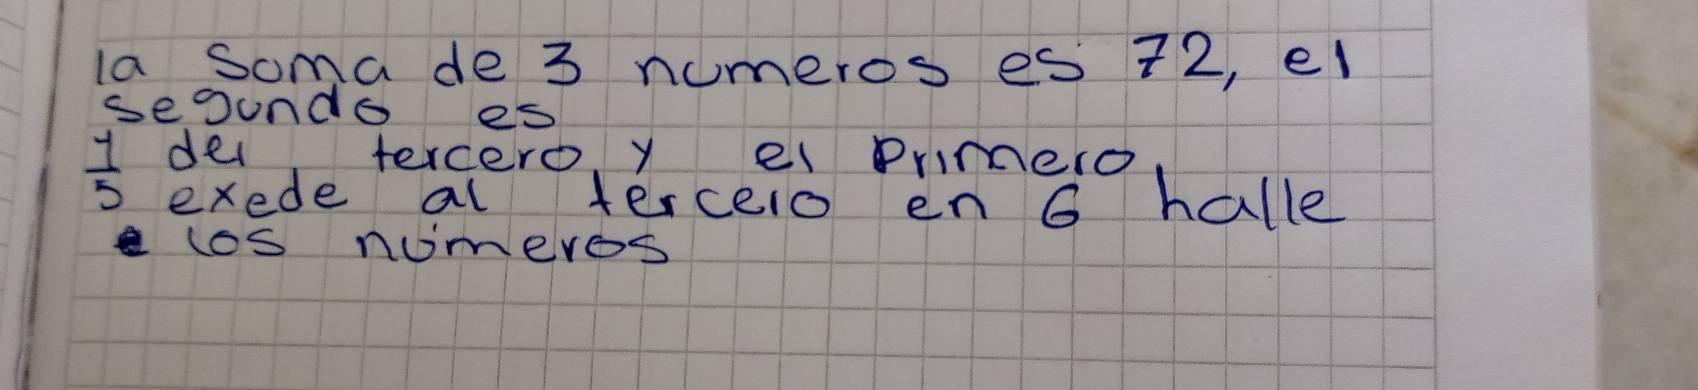 la suma de 3 numeros es 72, el
segundo es
1/5 del tercero y el Primero
exede al tercero en 6 halle
los números